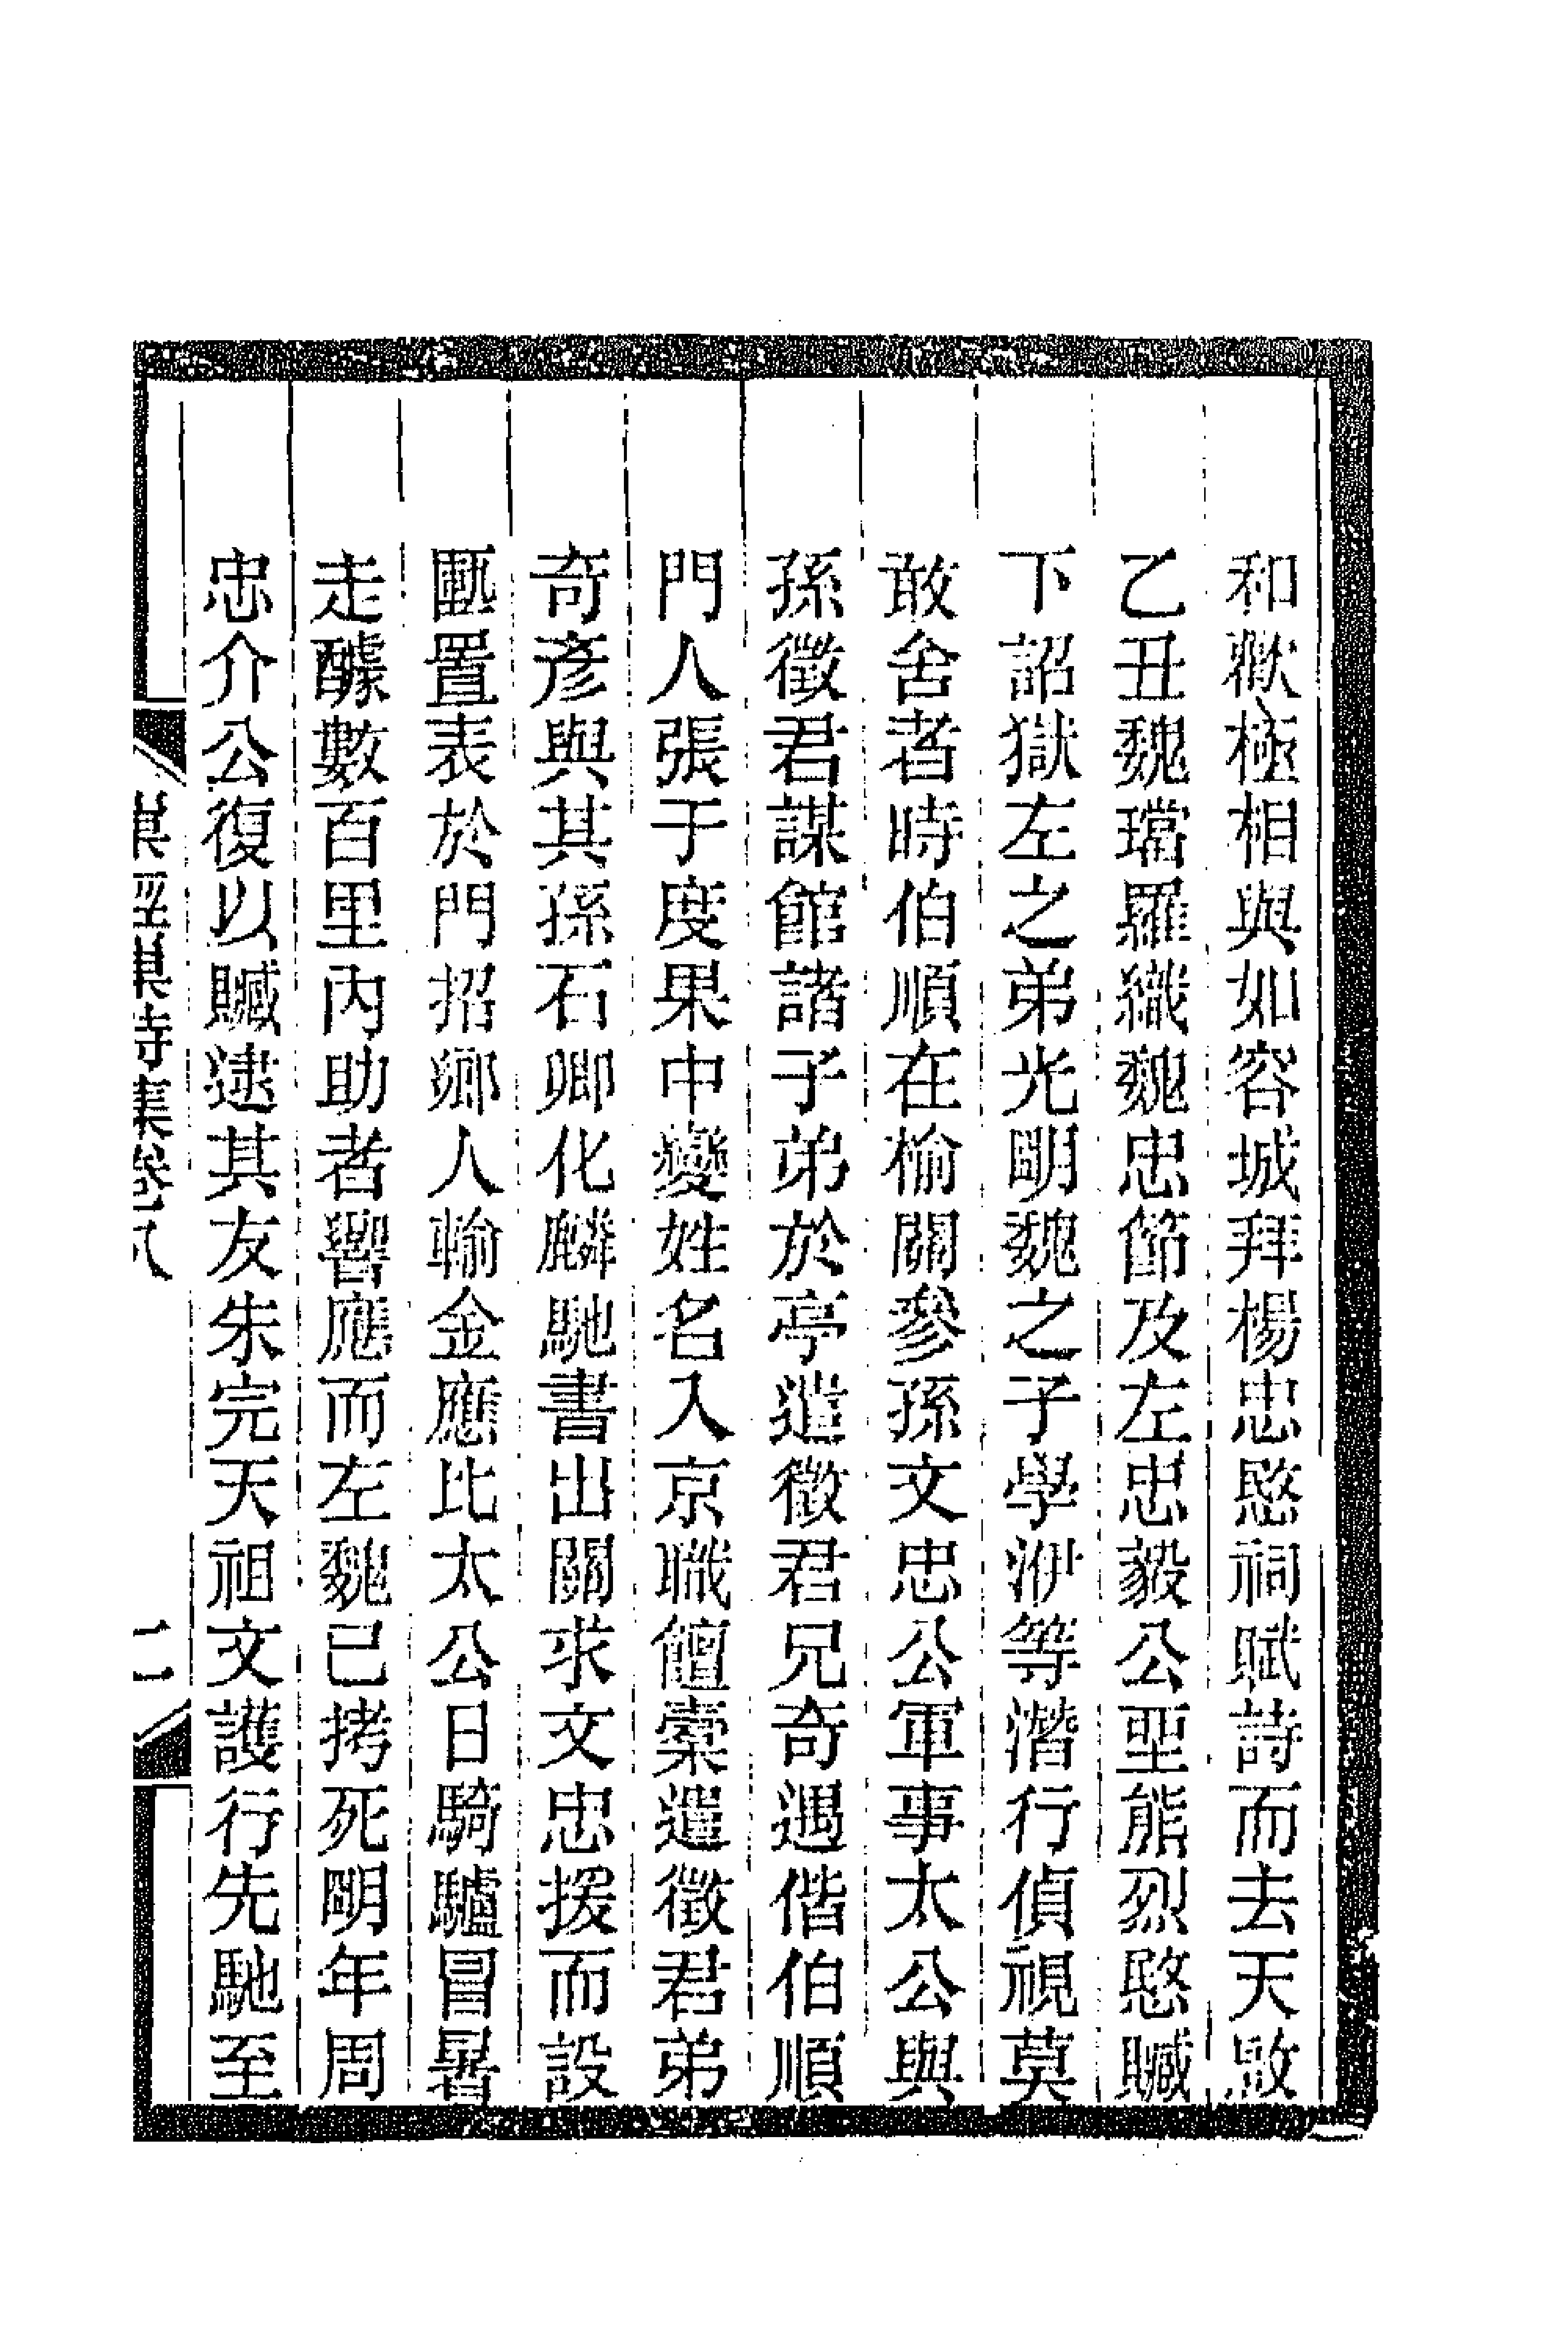 和歡極相與如容城拜楊忠愍祠賦詩而去天啟
乙丑魏璫羅織魏忠節及左忠毅公堊熊烈愍贓
下詔獄左之弟光明魏之子學洢等潛行偵視莫
敢舍者時伯順在榆關參孫文忠公軍事太公與
孫徵君謀館諸子弟於亭遣徵君兄奇遇偕伯順
門人張于度果中變姓名入京職饘橐遣徵君弟
奇彥與其孫石卿化麟馳書出關求文忠援而設
匭置表於門招鄉人輸金應比太公日騎驢冒暑
走醵數百里內助者響應而左魏已拷死明年周
忠介公復以贓逮其友朱完天祖文護行先馳至
集卷八
二